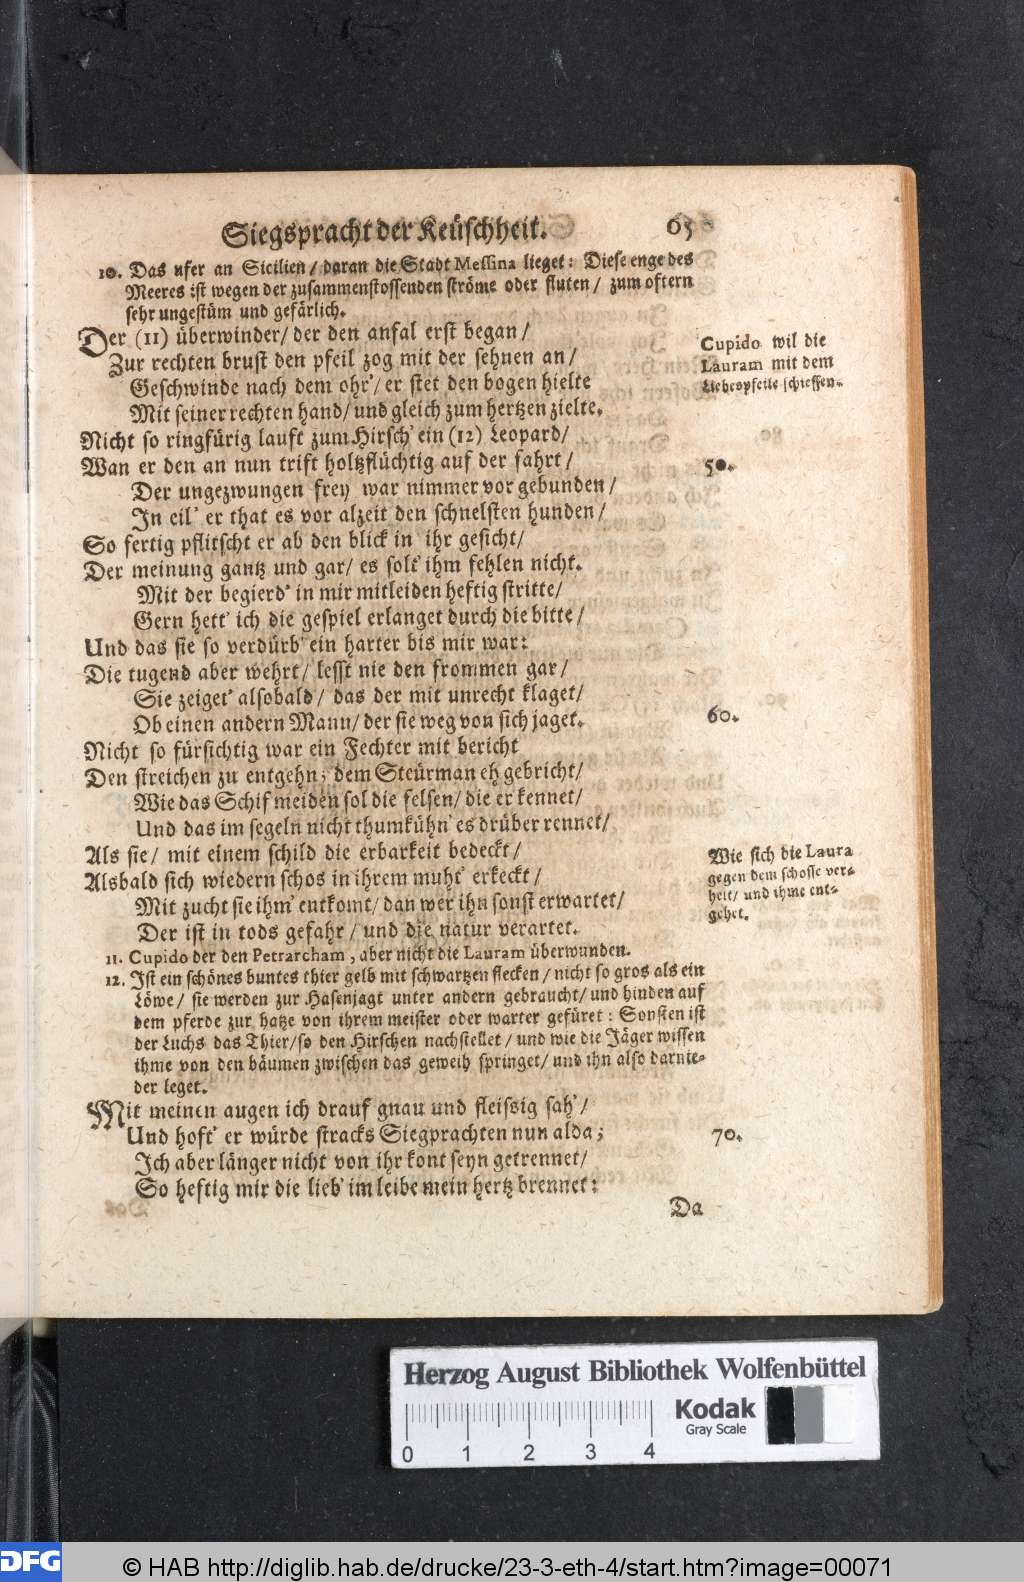 Siegspracht der Keüschheit. 65
10. Das ufer an Sicilien / daran die Stadt Messina lieget: Diese enge des
Meeres ist wegen der zusammenstossenden ströme oder fluten / zum oftern
sehr ungestüm und gefärlich.
Der (11) überwinder / der den anfal erst began /
Zur rechten brust den pfeil zog mit der sehnen an /
Geschwinde nach dem ohr' / er stet den bogen hielte
Mit seiner rechten hand / und gleich zum hertzen zielte.
Cupido wil die
Lauram mit dem
Liebespfeile schiessen.
Nicht so ringfürig lauft zum Hirsch' ein (12) Leopard /
Wan er den an nun trift holtzflüchtig auf der fahrt /
50.
Der ungezwungen frey war nimmer vor gebunden /
In eil' er that es vor alzeit den schnelsten hunden /
So fertig pflitscht er ab den blick in ihr gesicht /
Der meinung gantz und gar / es solt' ihm fehlen nicht.
Mit der begierd' in mir mitleiden heftig stritte /
Gern hett' ich die gespiel erlanget durch die bitte /
Und das sie so verdürb' ein harter bis mir war:
Die tugend aber wehrt / lesst nie den frommen gar /
Sie zeiget' alsobald / das der mit unrecht klaget /
Ob einen andern Mann / der sie weg von sich jaget.
60.
Nicht so fürsichtig war ein Fechter mit bericht
Den streichen zu entgehn; dem Steürman eh gebricht /
Wie das Schif meiden sol die felsen / die er kennet /
Und das im segeln nicht thumkühn' es drüber rennet /
Als sie / mit einem schild die erbarkeit bedeckt /
Alsbald sich wiedern schos in ihrem muht' erkeckt /
Mit zucht sie ihm' entkomt / dan wer ihn sonst erwartet /
Der ist in tods gefahr / und die natur verartet.
Wie sich die Laura
gegen dem schosse ver-
helt / und ihme ent-
gehet.
11. Cupido der den Petrarcham, aber nicht die Lauram überwunden.
12. Ist ein schönes buntes thier gelb mit schwartzen flecken / nicht so gros als ein
Löwe / sie werden zur Hasenjagt unter andern gebraucht / und hinden auf
dem pferde zur hatze von ihrem meister oder warter gefüret: Sonsten ist
der Luchs das Thier / so den Hirschen nachstellet / und wie die Jäger wissen
ihme von den bäumen zwischen das geweih springet / und ihn also darnie-
der leget.
Mit meinen augen ich drauf gnau und fleissig sah' /
Und hoft' er würde stracks Siegprachten nun alda;
70.
Ich aber länger nicht von ihr kont seyn getrennet /
So heftig mir die lieb' im leibe mein hertz brennet:
Da
Herzog August Bibliothek Wolfenbüttel
Kodak
Gray Scale
0 1 2 3 4
DFG © HAB http://diglib.hab.de/drucke/23-3-eth-4/start.htm?image=00071